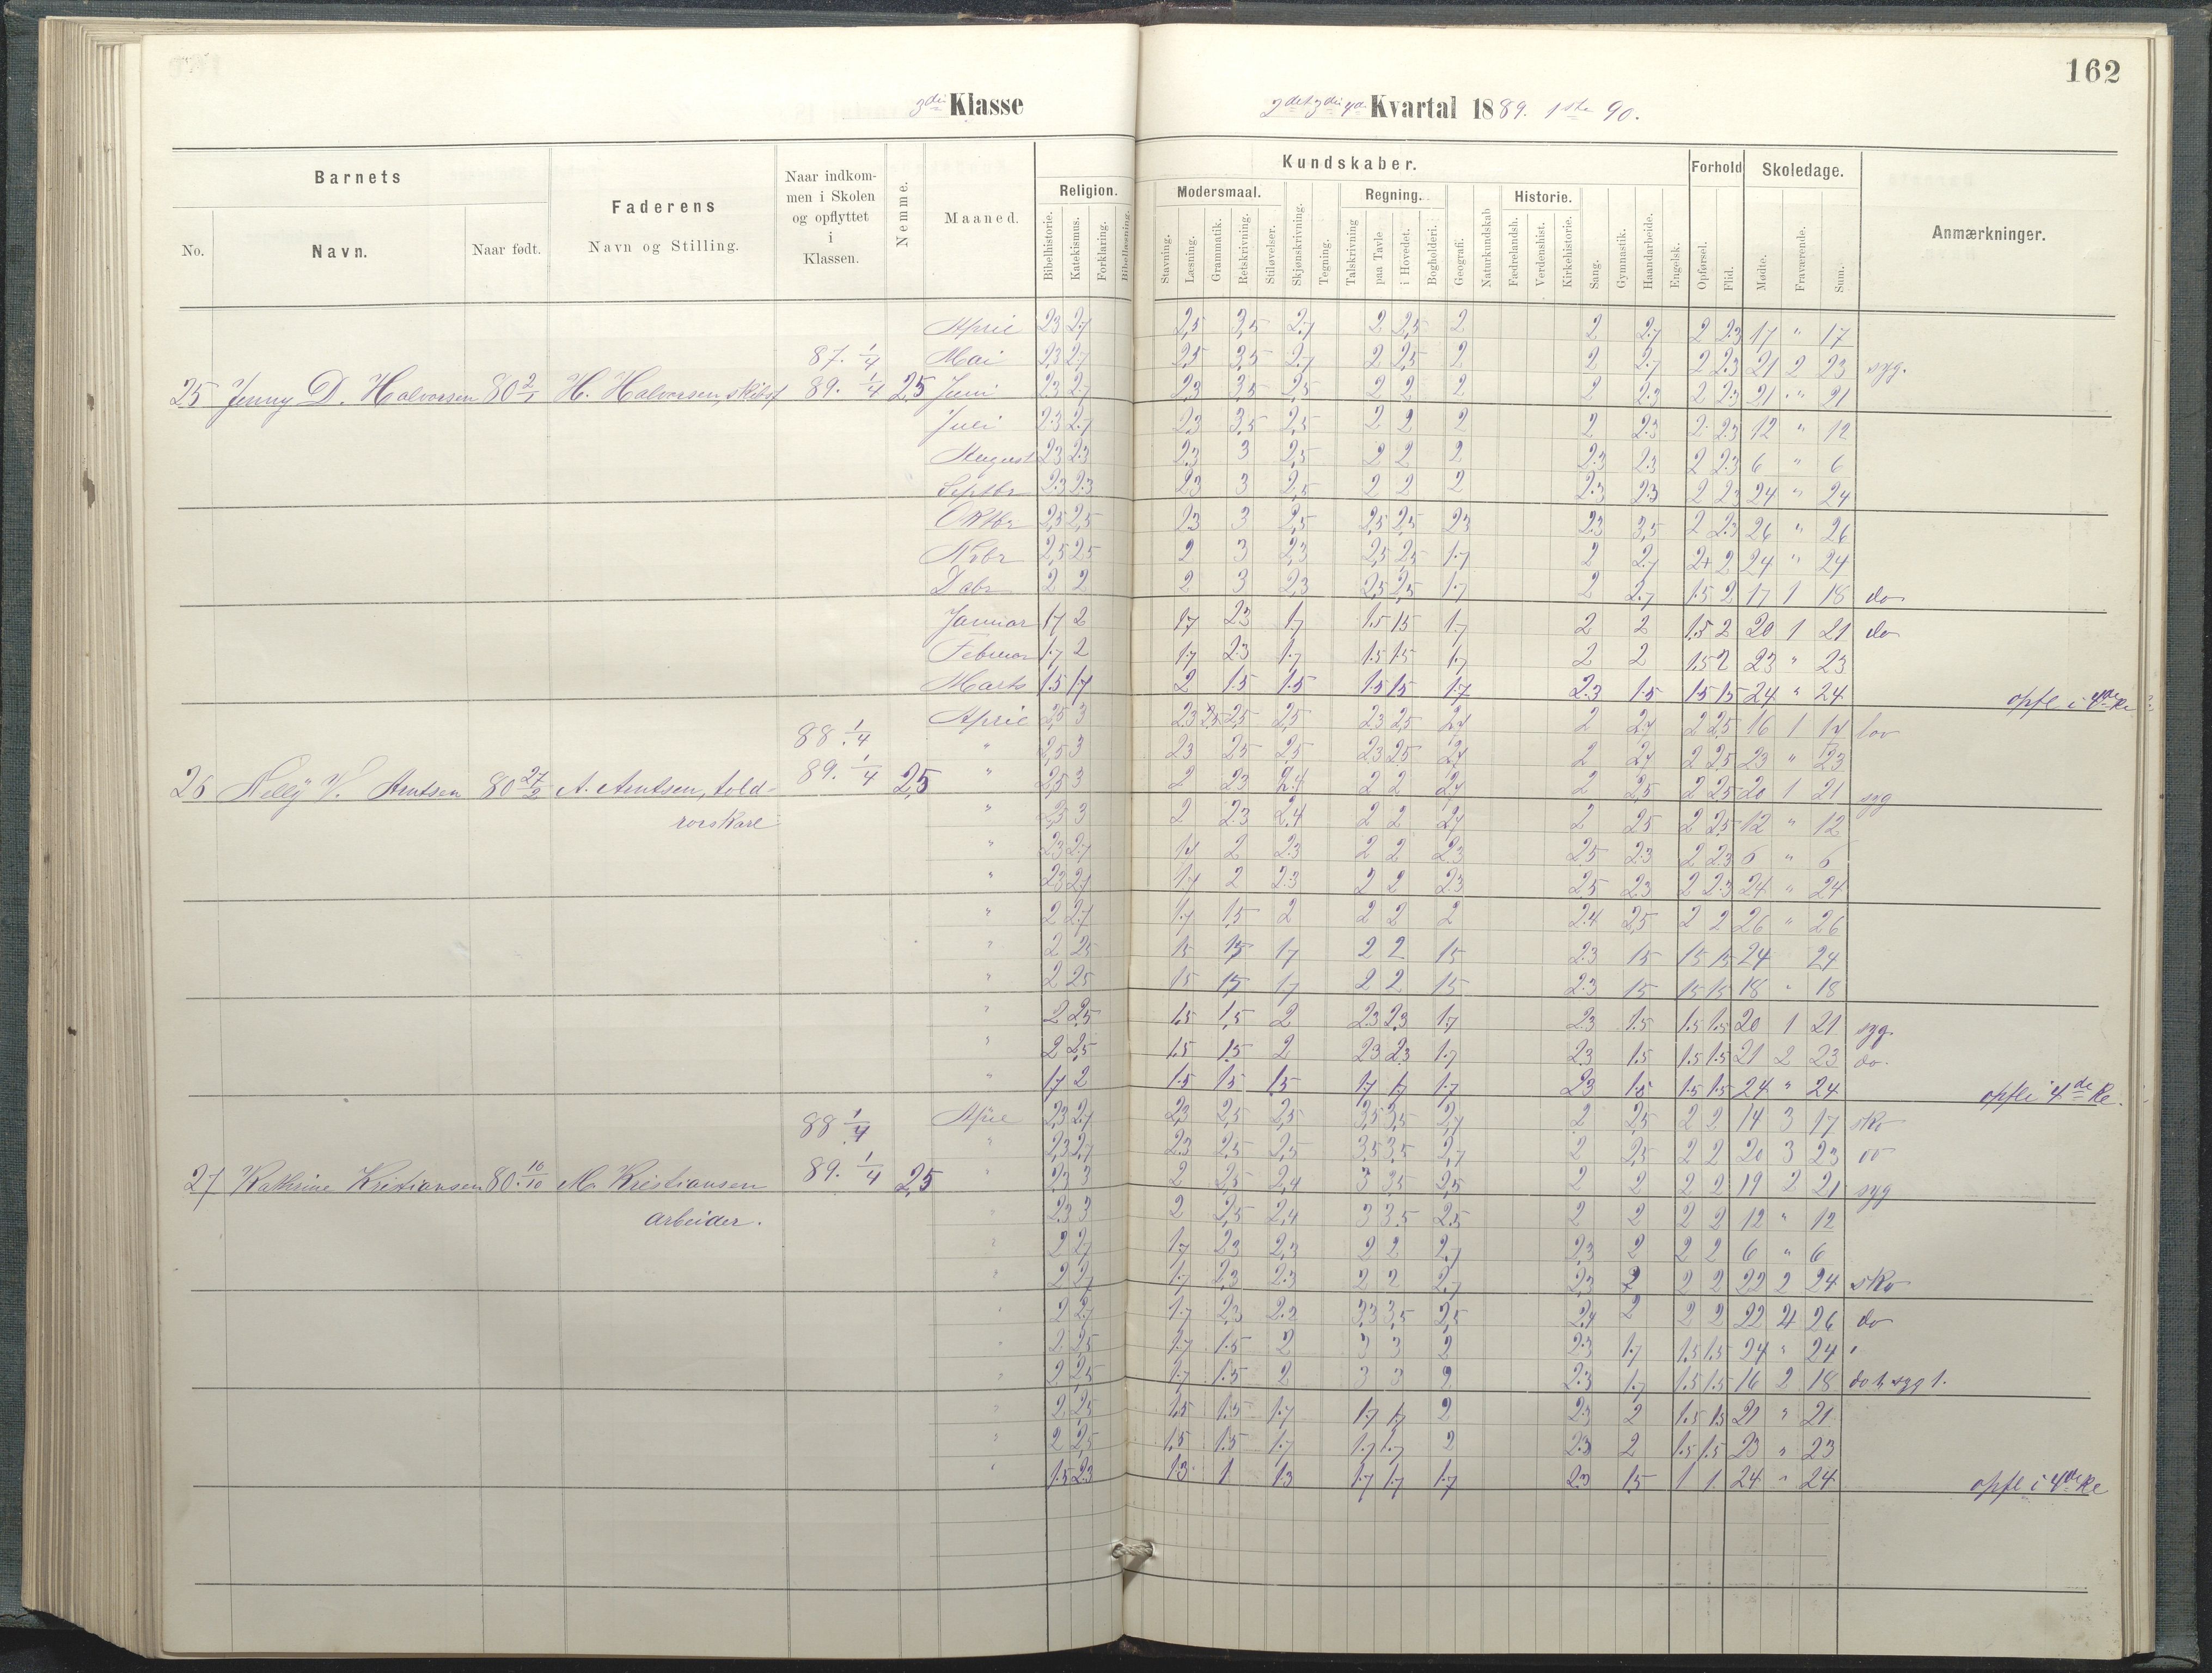 162
3die Klasse
2det 3die 4de Kvartal 1889. 1ste 90.
Barnets
Faderens
Naar indkommen i Skolen og opflyttet i Klassen.
Nemme.
Maaned.
Religion.
Kundskaber.
Modersmaal.
Regning.
Historie.
Forhold
Skoledage.
Anmærkninger.
No.
Navn.
Naar født.
Navn og Stilling.
Bibelhistorie.
Katekismus.
Forklaring.
Bibellæsning.
Stavning.
Læsning.
Grammatik.
Retskrivning.
Stiløvelser.
Skjønskrivning.
Tegning.
Talskrivning
paa Tavle
i Hovedet.
Bogholderi.
Geografi.
Naturkundskab
Fædrelandsh.
Verdenshist.
Kirkehistorie.
Sang.
Gymnastik.
Haandarbeide.
Engelsk.
Opførsel.
Flid.
Mødte.
Fraværende.
Sum.
April 2,3 2,7 2,5 3,5 2,7 2 2,5 2 2 2,7 2 2.3 17 " 17
87. 1/4 Mai 2,3 2,7 2,5 3,5 2,7 2 2,5 2 2 2,7 2 2.3 21 2 23 syg.
25 Jenny D. Halvorsen 80 2/1 H. Halvorsen, skibsf 89. 1/4 2,5 Juni 2,3 2,7 2,3 3,5 2,5 2 2 2 2 2.3 2 2.3 21 " 21
Juli 2.3 2,7 2,3 3,5 2,5 2 2 2 2 2.3 2 2.3 12 " 12
August 2.3 2.3 2,3 3 2,5 2 2 2 2.3 2.3 2 2.3 6 " 6
Septbr 2.3 2.3 2,3 3 2,5 2 2 2 2.3 2.3 2 2.3 24 " 24
Oktbr 2,5 2,5 2.3 3 2,5 2,5 2,5 2,3 2.3 3,5 2 2.3 26 " 26
Nvbr 2,5 2,5 2 3 2,3 2,5 2,5 1.7 2 2.7 2+ 2 24 " 24
Dcbr 2 2 2 3 2,3 2,5 2,5 1.7 2 2.7 1.5 2 17 1 18 do
Januar 1.7 2 1.7 2.3 1.7 1.5 1.5 1.7 2 2 1.5 2 20 1 21 do
Februar 1.7 2 1.7 2.3 1.7 1.5 1.5 1.7 2 2 1.5 2 23 " 23
Marts 1.5 1.7 2 1.5 1.5 1.5 1.5 1.7 2.3 1.5 1.5 1.5 24 " 24 opfl i 4de Kl
April 2,5 3 2,3 2,5 2,5 2,5 2,3 2,5 2,7 2 2,7 2 2.5 16 1 17 lov
88. 1/4 " 2,5 3 2,3 2,5 2,5 2,3 2,5 2,7 2 2,7 2 2.5 23 " 23
26 Nelly V. Arntsen 80 27/2 A. Arntsen, told- 89. 1/4 2,5 " 2,5 3 2 2,3 2,4 2 2 2,7 2 2,5 2 2.5 20 1 21 syg
rorskarl " 2,3 3 2 2.3 2.4 2 2 2,7 2 2,5 2 2.5 12 " 12
" 2,3 2,7 1.7 2 2.3 2 2 2.3 2.5 2.3 2 2.3 6 " 6
" 2,3 2,7 1.7 2 2.3 2 2 2.3 2.5 2.3 2 2.3 24 " 24
" 2 2,7 1.7 1.5 2 2 2 2 2.4 2.5 2 2 26 " 26
" 2 2.5 1.5 1.5 1.7 2 2 1.5 2.3 1.5 1.5 1.5 24 24
" 2 2.5 1.5 1.5 1.7 2 2 1.5 2.3 1.5 1.5 1.5 18 " 18
" 2 2.5 1.5 1.5 2 2.3 2.3 1.7 2.3 1.5 1.5 1.5 20 1 21 syg
" 2 2.5 1.5 1.5 2 2.3 2.3 1.7 2.3 1.5 1.5 1.5 21 2 23 do.
" 1.7 2 1.5 1.5 1.5 1.7 1.7 1.7 2.3 1.5 1.5 1.5 24 " 24 opfl i 4de Kl.
88 1/4 April 2,3 2,7 2,3 2,5 2,5 3,5 3,5 2,7 2 2,5 2 2 14 3 17 sko
" 2,3 2,7 2.3 2.5 2,5 3,5 3,5 2,7 2 2,5 2 2 20 3 23 do
27 Kathrine Kristiansen 80. 16/10 M. Kristiansen 89. 1/4 2,5 " 2,3 3 2 2,5 2,4 3 3,5 2,5 2 2 2 2 19 2 21 syg
arbeider. " 2.3 3 2 2,5 2,4 3 3.5 2.5 2 2 2 2 12 " 12
" 2 2,7 1.7 2.3 2,3 2 2 2.7 2.3 2 2 2 6 " 6
" 2 2,7 1.7 2.3 2.3 2 2 2.7 2.3 2 2 2 22 2 24 sko
" 2 2.7 1.7 2,3 2.2 3.3 3,5 2,5 2.4 2 2 2 22 4 26 do
" 2 2.5 1.7 1.5 2 3 3 2 2.3 1.7 1.5 1.5 24 " 24 "
" 2 2.5 1.7 1.5 2 3 3 2 2.3 1.7 1.5 1.5 16 2 18 do 1, syg 1.
" 2 2.5 1.5 1.5 1.7 1.7 1.7 2 2.3 2 1.5 1.5 21 " 21
" 2 2.5 1.5 1.5 1.7 1.7 1.7 2 2.3 2 1.5 1.5 23 " 23
" 1.5 2.3 1.3 1 1.3 1.7 1.7 1.7 2.3 1.5 1 1 24 " 24 opfl i 4de Kl